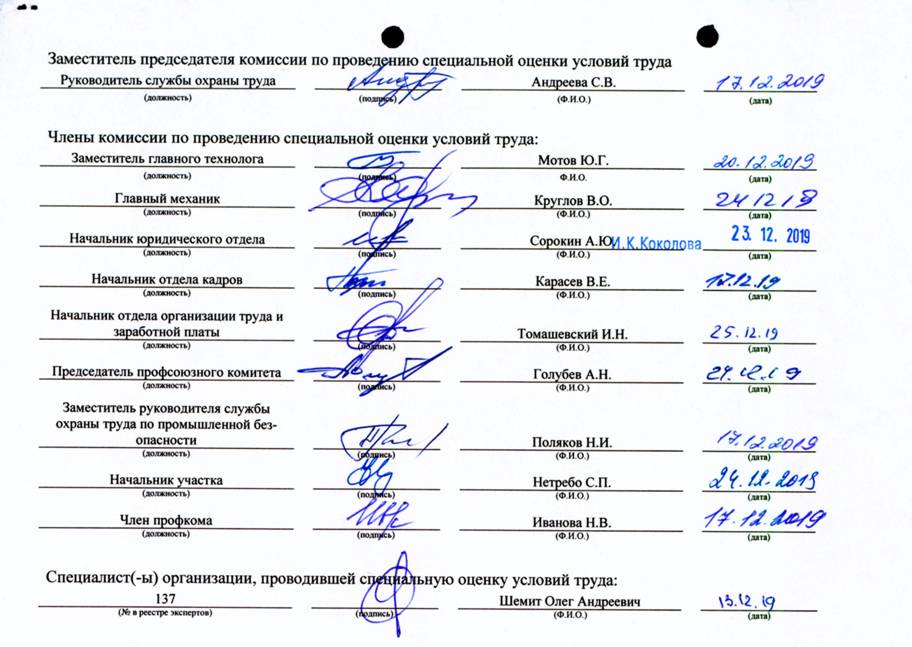 Заместитель председателя комиссии по проведению специальной оценки условий труда
Руководитель службы охраны труда Андреева С.В. 17.12.2019
(должность) (подпись) (Ф.И.О.) (дата)
Члены комиссии по проведению специальной оценки условий труда:
Заместитель главного технолога Мотов Ю.Г. 20.12.2019
(должность) (подпись) Ф.И.О. (дата)
Главный механик Круглов В.О. 24 12 19
(должность) (подпись) (Ф.И.О.) (дата)
Начальник юридического отдела Сорокин А.Ю. И.К.Коколова 23. 12. 2019
(должность) (подпись) (Ф.И.О.) (дата)
Начальник отдела кадров Карасев В.Е. 17.12.19
(должность) (подпись) (Ф.И.О.) (дата)
Начальник отдела организации труда и
заработной платы Томашевский И.Н. 25.12.19
(должность) (подпись) (Ф.И.О.) (дата)
Председатель профсоюзного комитета Голубев А.Н.
(должность) (подпись) (Ф.И.О.) (дата)
Заместитель руководителя службы
охраны труда по промышленной без-
опасности Поляков Н.И. 17.12.2019
(должность) (подпись) (Ф.И.О.) (дата)
Начальник участка Нетребо С.П. 24.12.2019
(должность) (подпись) (Ф.И.О.) (дата)
Член профкома Иванова Н.В. 17.12.2019
(должность) (подпись) (Ф.И.О.) (дата)
Специалист(-ы) организации, проводившей специальную оценку условий труда:
137 Шемит Олег Андреевич 13.12.19
(№ в реестре экспертов) (подпись) (Ф.И.О.) (дата)